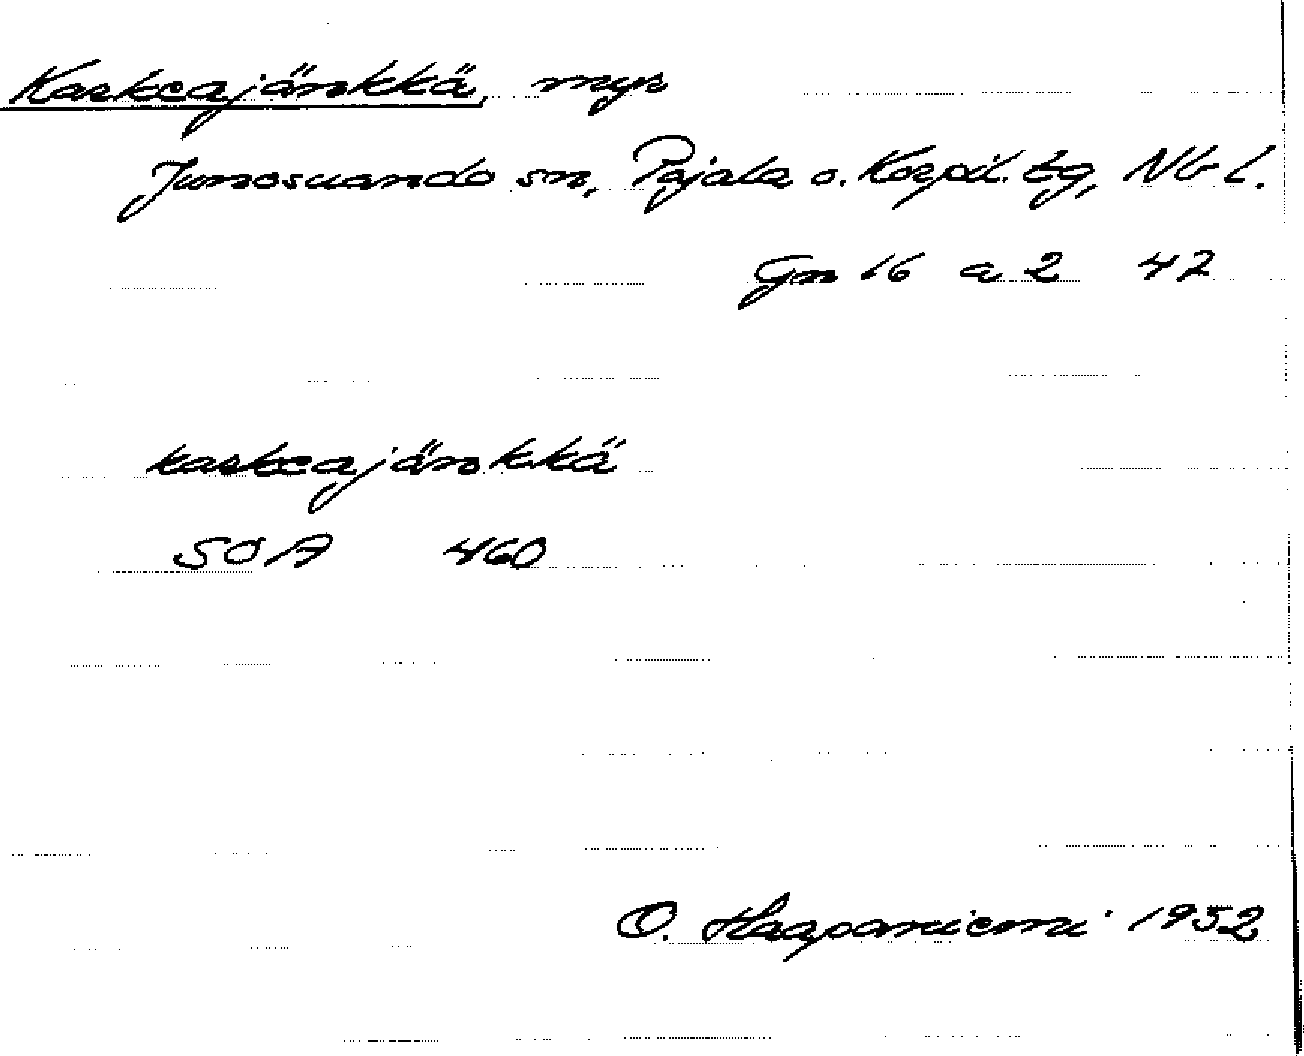 Kaskeajänkkä, myr
Junosuando sn, Pajala o. Korpil. tg, Nb l.
Gn 16 a 2 42
kaskeajänkkä
SOA 460
O. Haapaniemi 1952